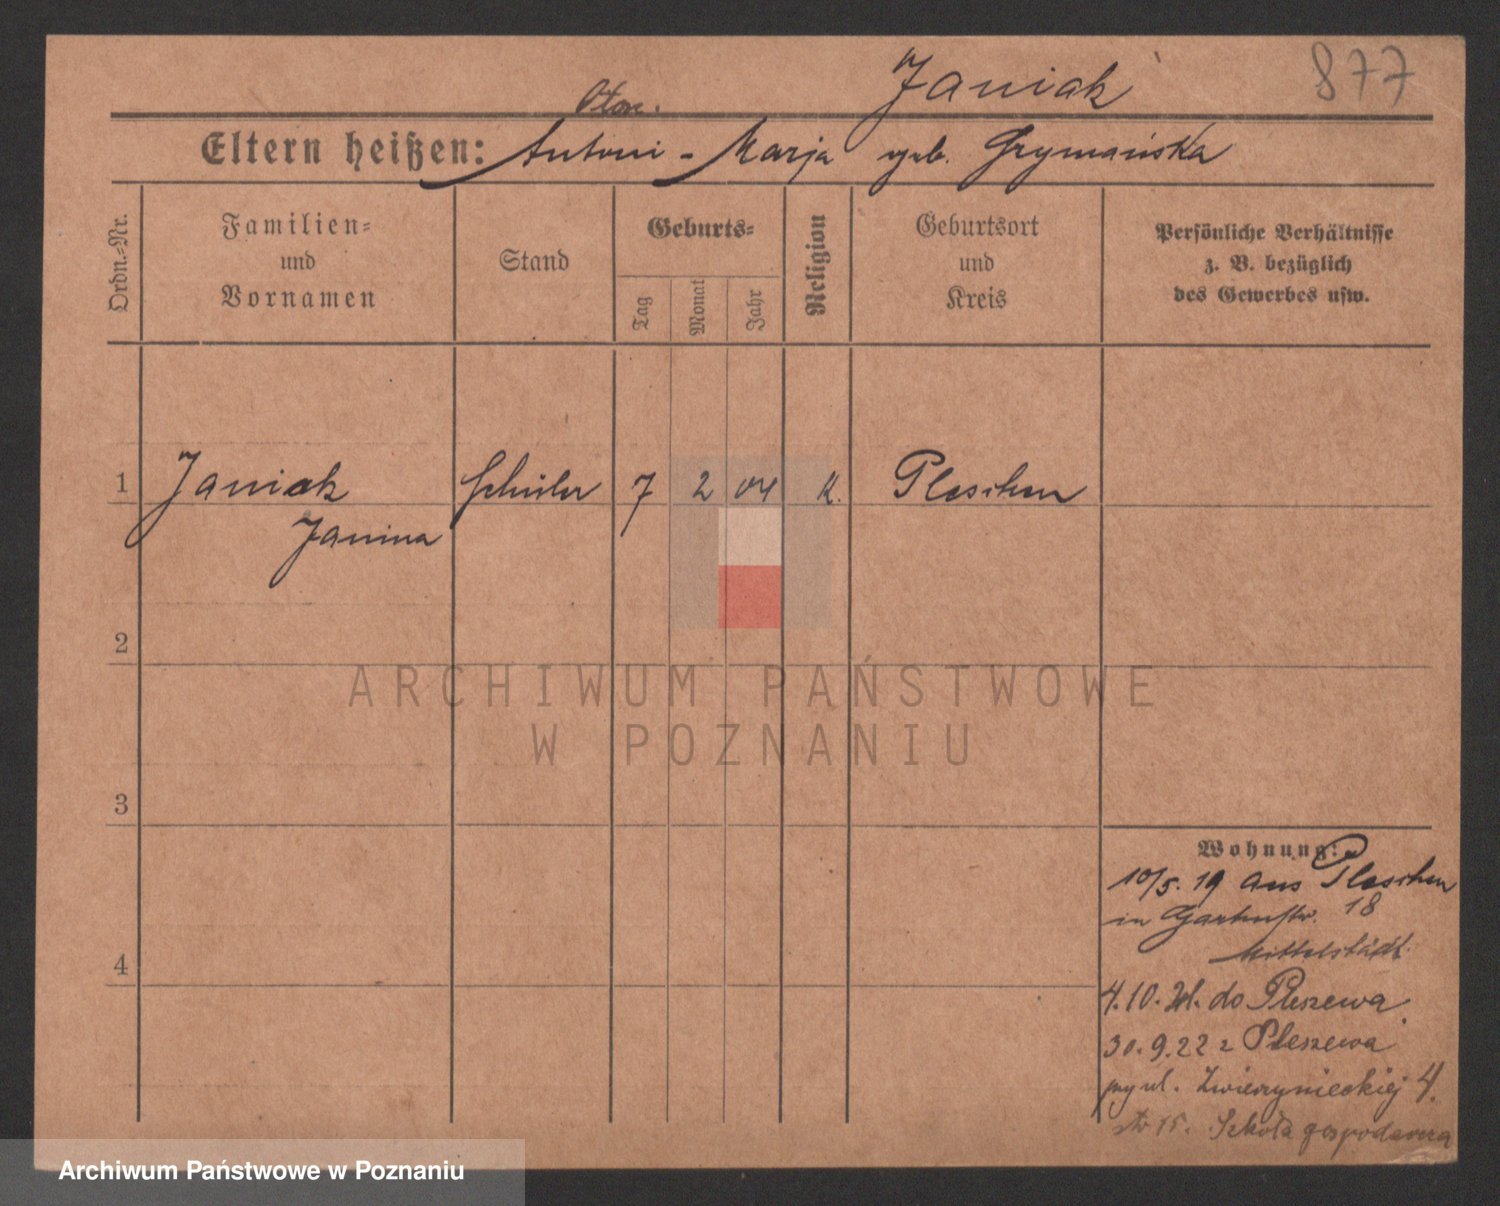 Janiak 877
Eltern heißen: Antoni - Marja geb. Grymańska
Ordn.=Nr.
Familien=
und
Vornamen
Stand
Geburts=
Tag
Monat
Jahr
Religion
Geburtsort
und
Kreis
Persönliche Verhältnisse
z. B. bezüglich
des Gewerbes usw.
1 Janiak Schüler 7 2 04 K. Pleschen
Janina
2
3
4
Wohnung:
10/5. 19 aus Pleschen
in Gartenstr. 18
Mittelstädt.
4.10. do Pleszewa.
30.9.22 z Pleszewa
ul. Zwierzynieckiej 4.
15. Szkoła gospodarcza
ARCHIWUM PAŃSTWOWE
W POZNANIU
Archiwum Państwowe w Poznaniu